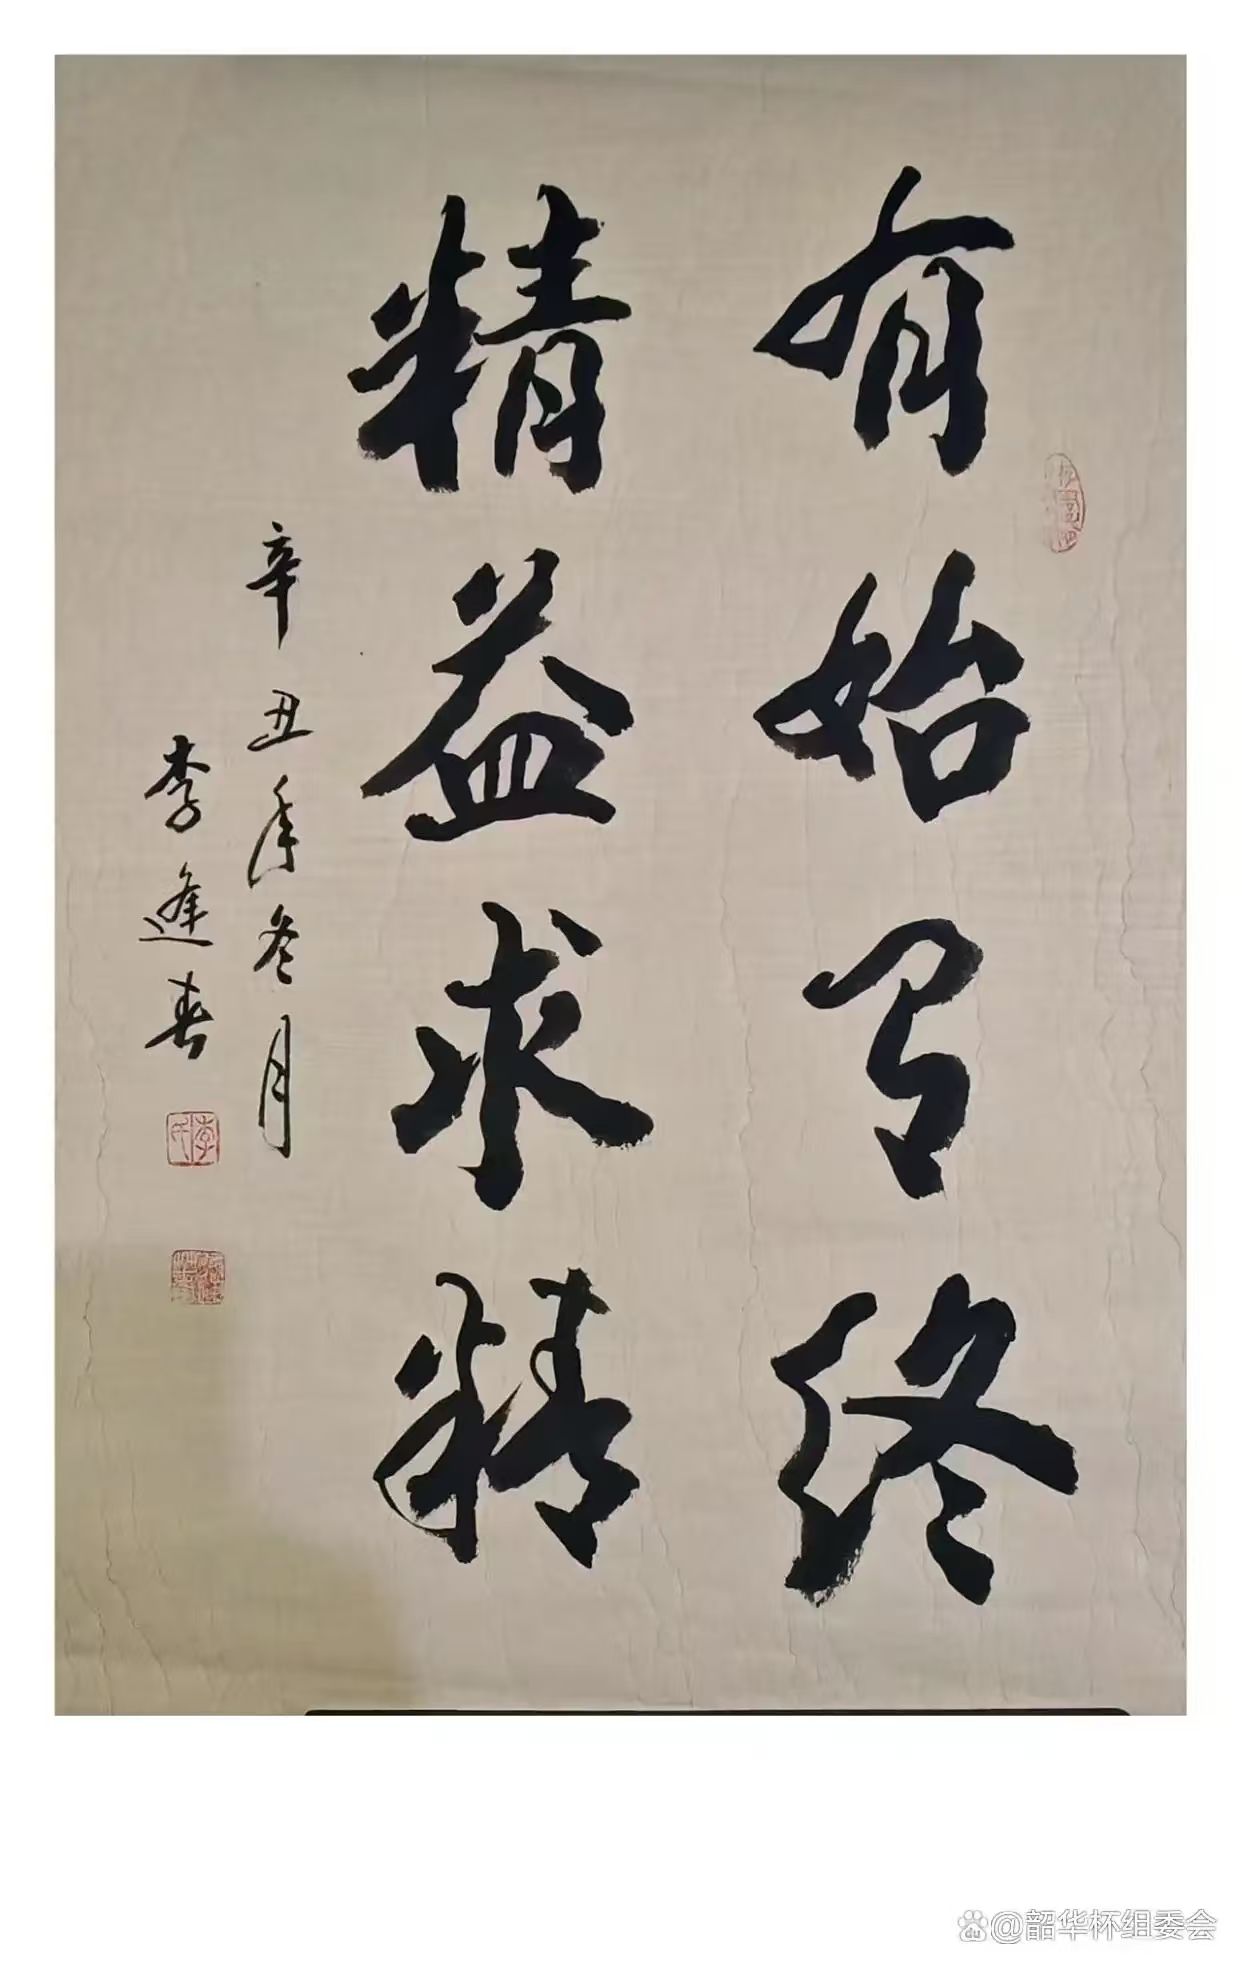 有始有终
精益求精
辛丑年冬月
李逢春
李氏
@韶华杯组委会